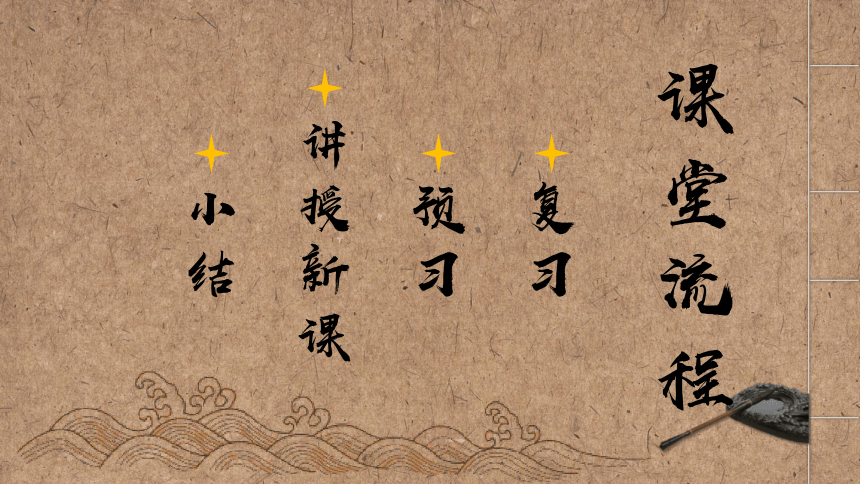 课堂流程
复习
预习
讲授新课
小结